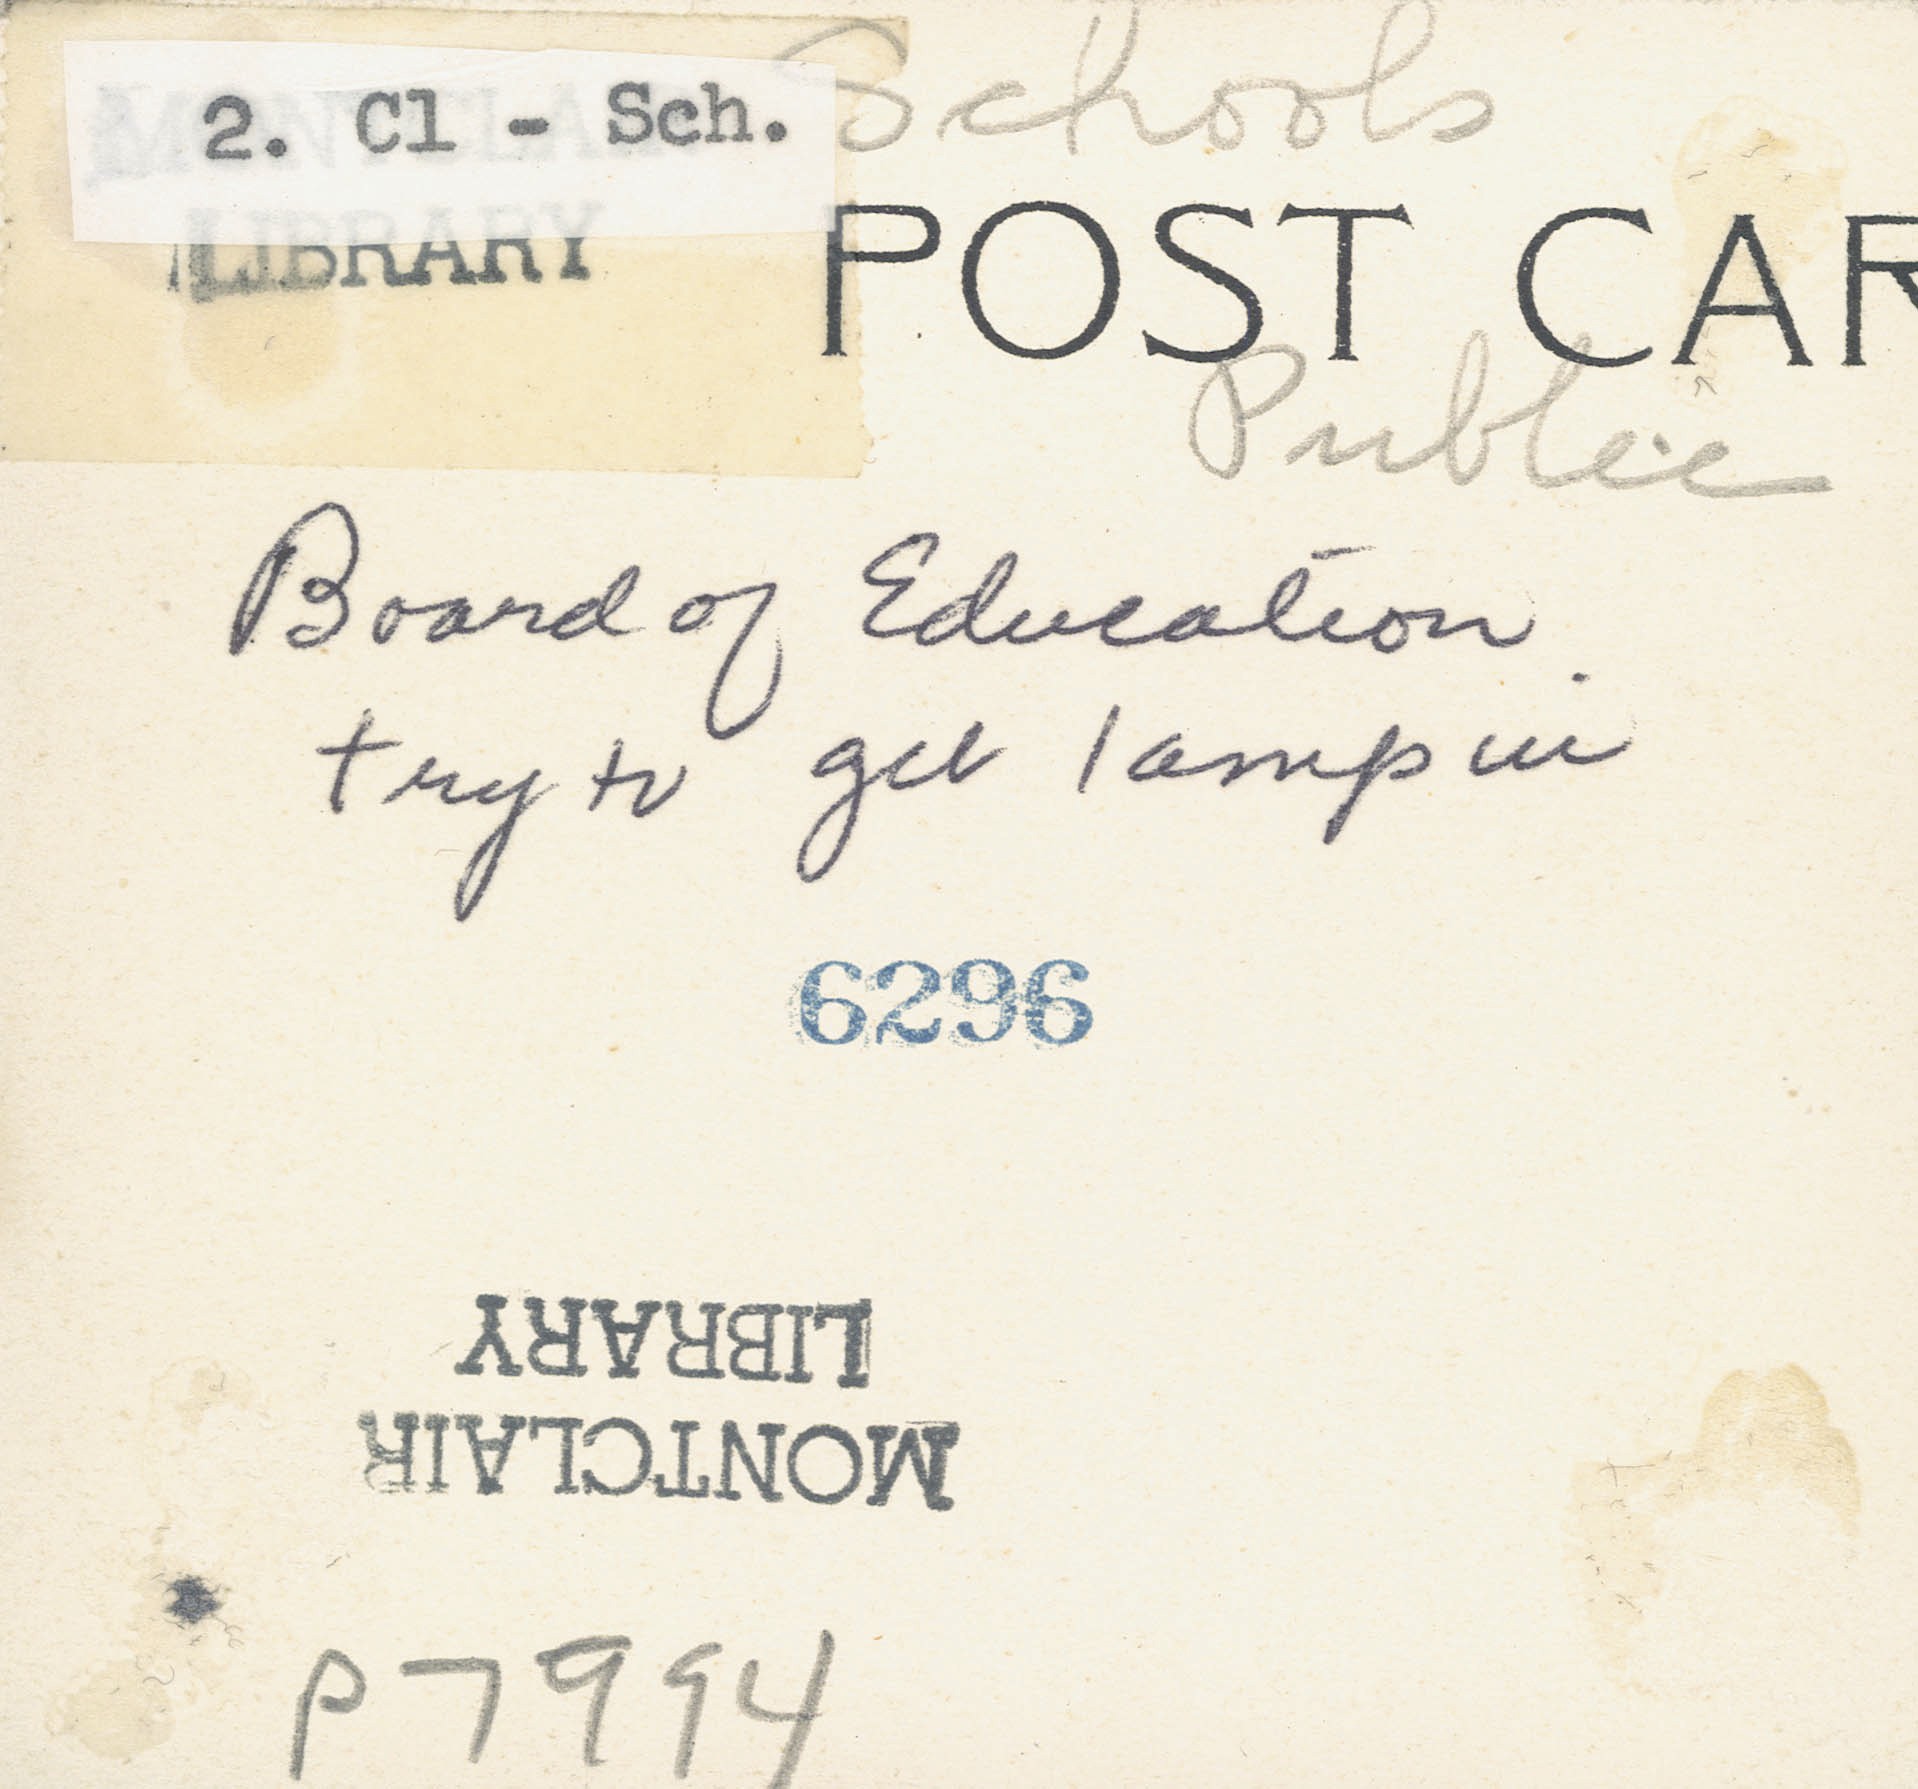 2. Cl - Sch.
MONTCLAIR
LIBRARY
Schools
POST CAR
Public
Board of Education
try to get lamp in
6296
MONTCLAIR
LIBRARY
P7994